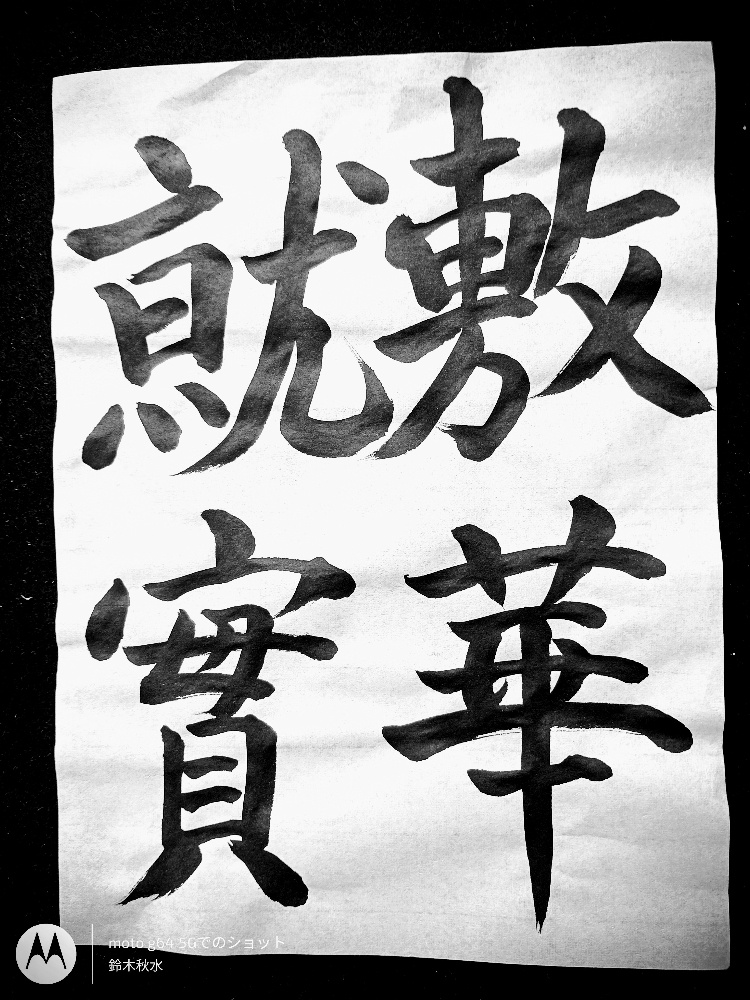 敷華
就實
moto g64 5Gでのショット
鈴木秋水